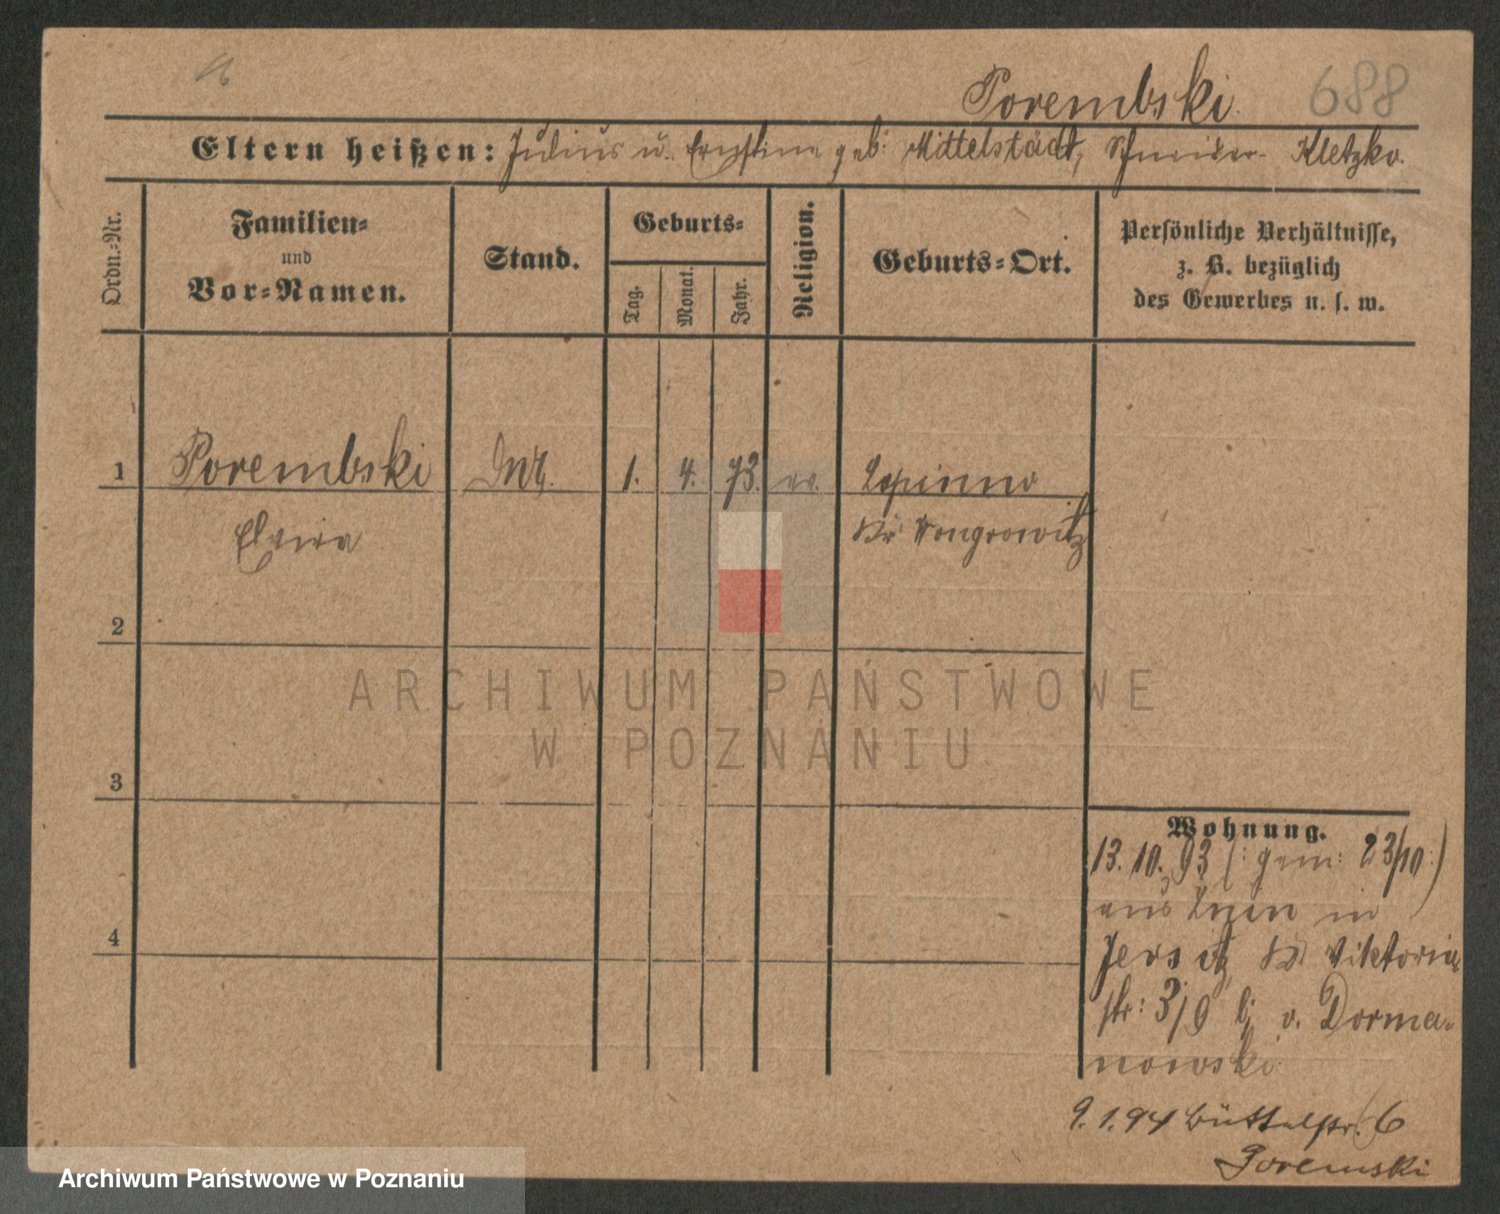 Porembski. 688
Eltern heißen: Julius u. Ernstine geb: Mittelstädt, Schneider- Kletzko.
Ordn.-Nr.
Familien-
und
Vor-Namen.
Stand.
Geburts-
Tag.
Monat.
Jahr.
Religion.
Geburts-Ort.
Persönliche Verhältnisse,
z. B. bezüglich
des Gewerbes u. s. w.
1 Porembski 1. 4. 73. ev. Lopienno
Elvira Kr Wongrowitz
2
3
4
Wohnung.
13. 10. 93 (: gem: 23/10:)
aus Znin in
Jersitz, Viktoria
str: 3/9 bj v. Dorma-
nowski
9.1.94 Büttelstr. 6
Poremski
ARCHIWUM PAŃSTWOWE
W POZNANIU
Archiwum Państwowe w Poznaniu